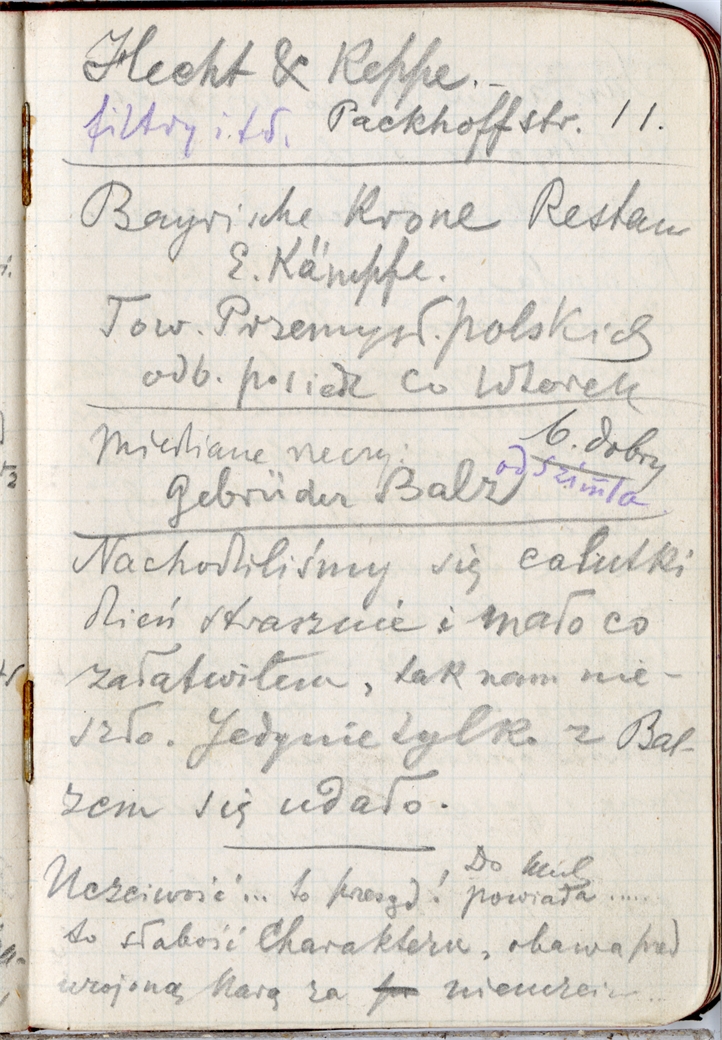 Hecht & Keppe.-
filtry i.t.d. Packhoffstr. 11.
Bayrische Krone Restau
E. Kämpffe.
Tow. Przemysł. polskich
odb. posiedz co wtorek
miedziane rzeczy:
b. dobry
Gebrüder Balz
od
Nachodziliśmy się calutki
dzień strasznie i mało co
załatwiłem, tak nam nie-
szło. Jedynie tylko z Bal-
zem się udało.
Do
Uczciwość... to przesąd! powiada.....
to słabość Charakteru, obawa przed
urojoną karą za